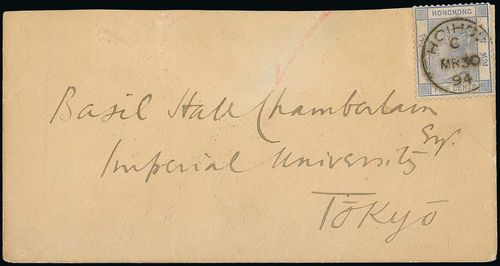 HONGKONG
HOIHOW
C
MR 30
94
CENTS
Basil Hall Chamberlain
Esq.
Imperial University
Tōkyō